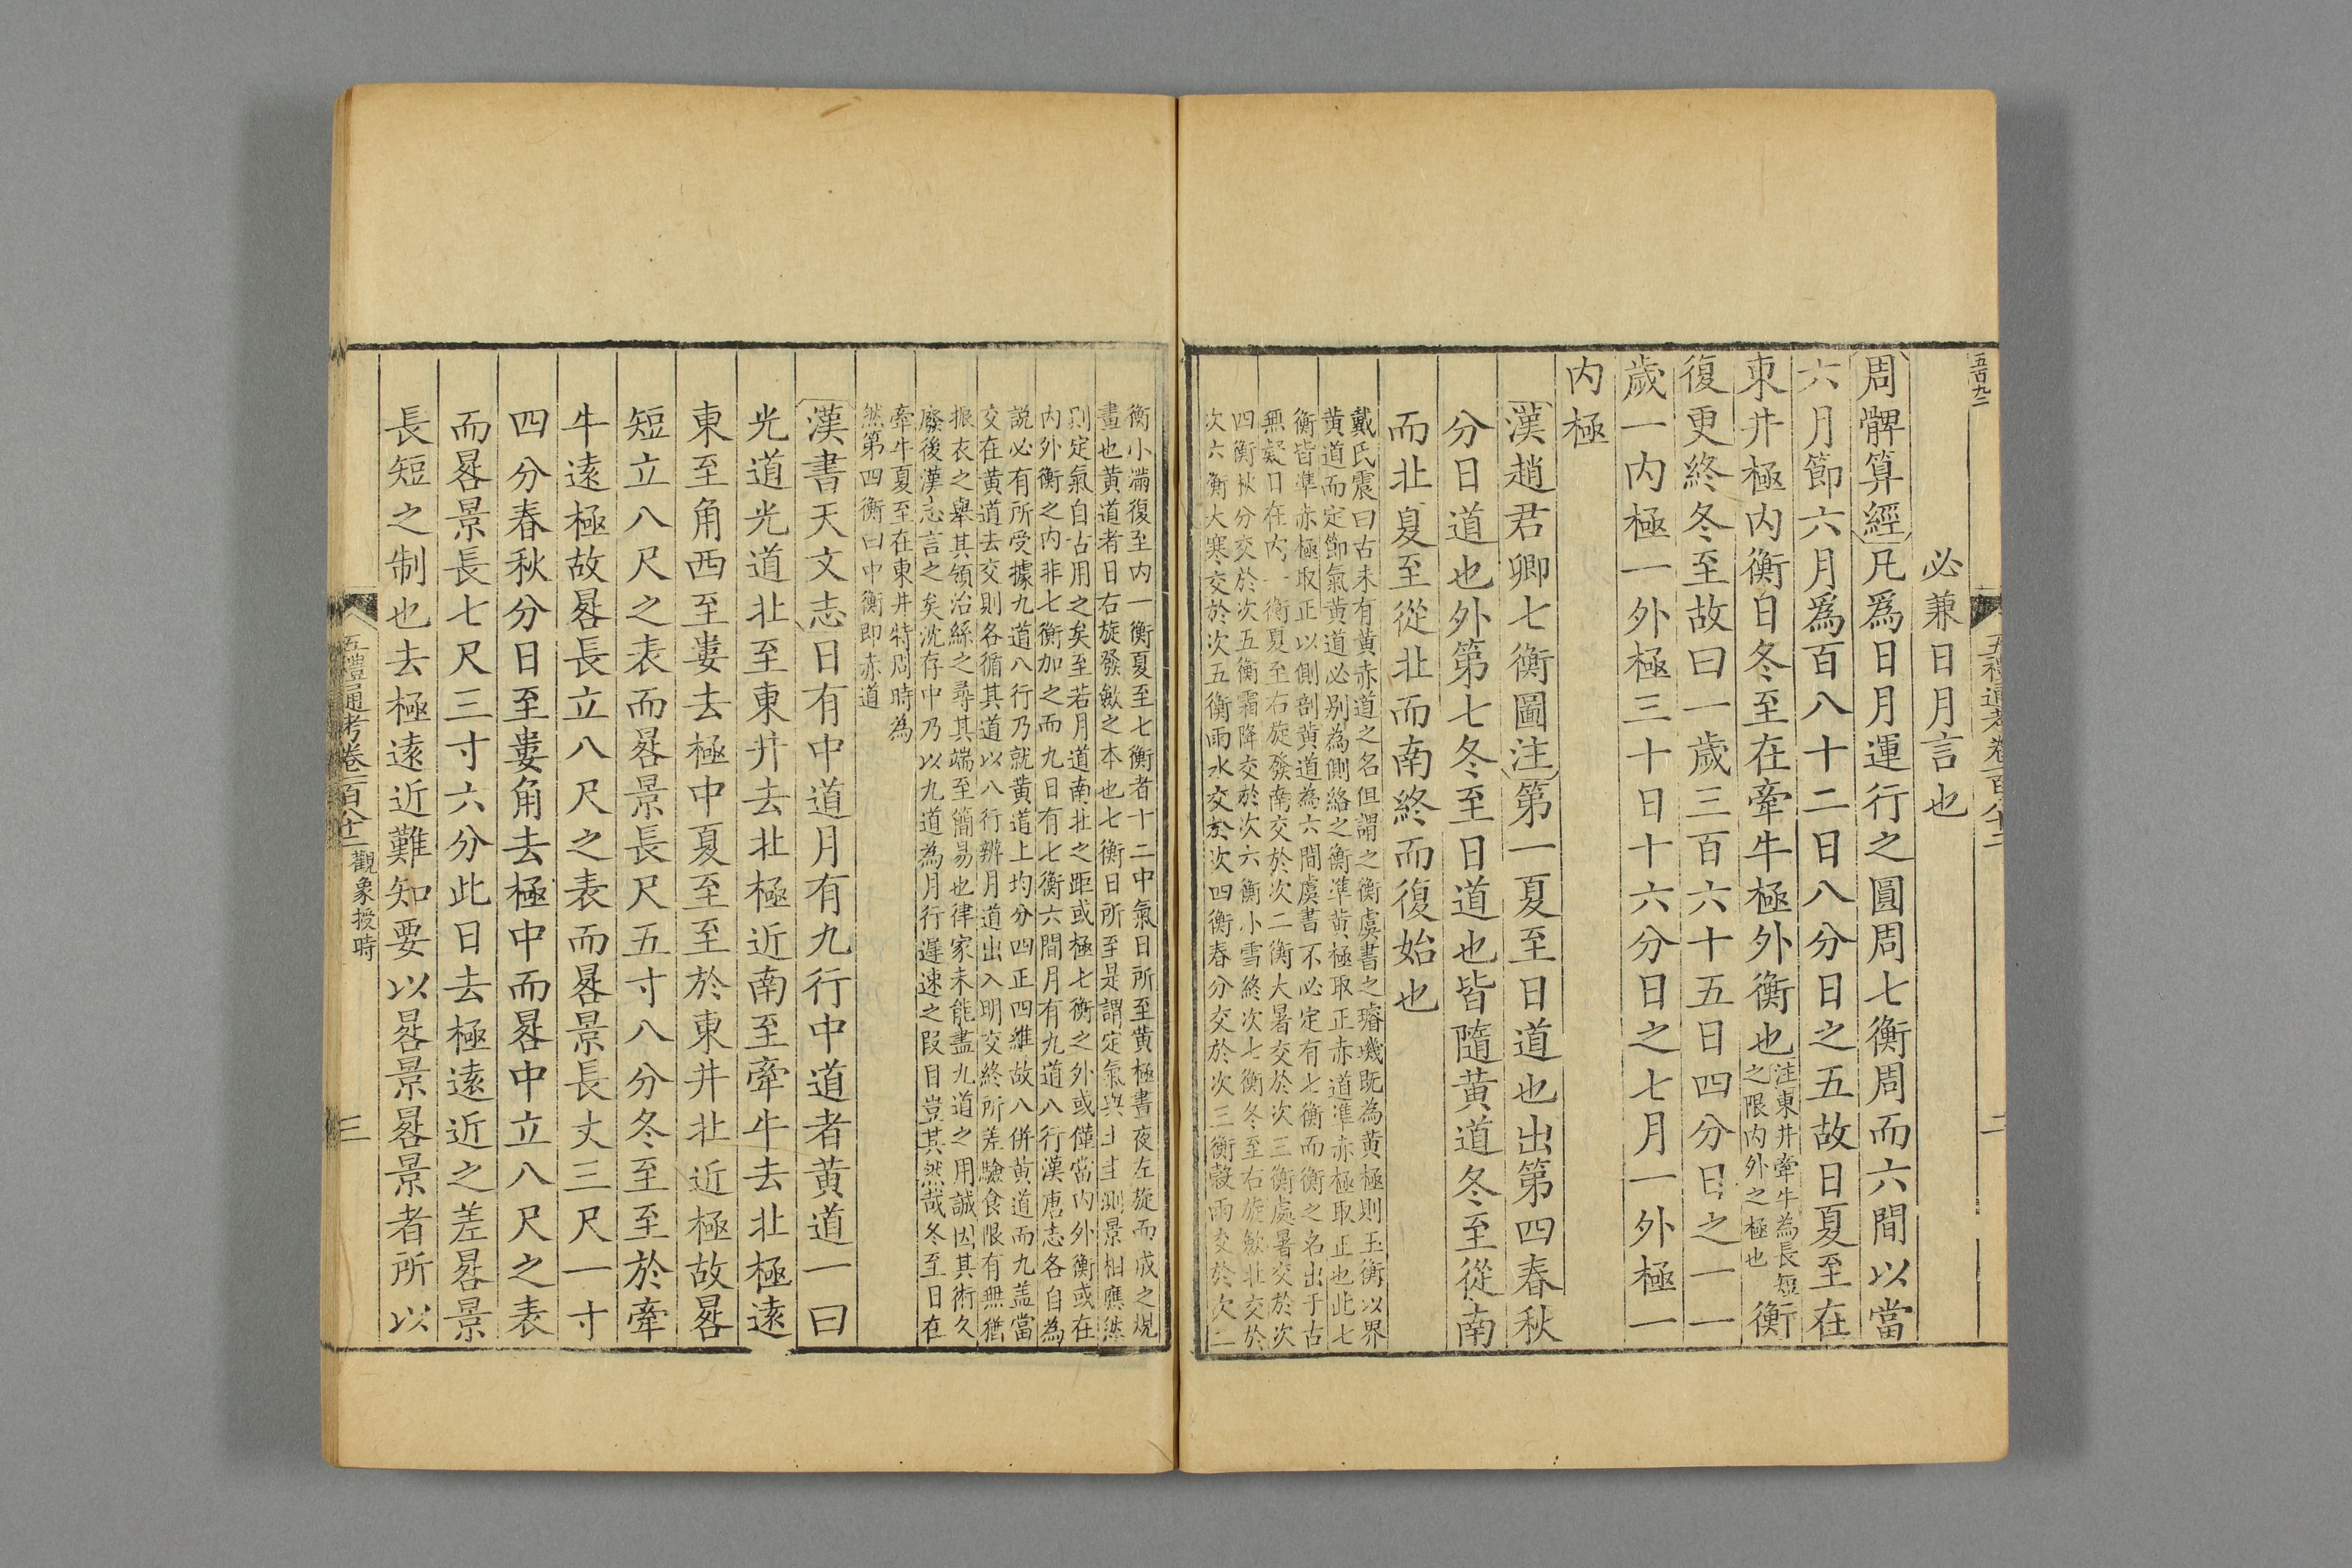 五百九二
五禮通考卷一百八十二
二
必兼日月言也
周髀算經凡爲日月運行之圓周七衡周而六間以當
六月節六月爲百八十二日八分日之五故日夏至在
東井極內衡日冬至在牽牛極外衡也注東井牽牛為長短之限內外之極也衡
復更終冬至故曰一歲三百六十五日四分日之一一
歲一內極一外極三十日十六分日之七月一外極一
內極
漢趙君卿七衡圖注第一夏至日道也出第四春秋
分日道也外第七冬至日道也皆隨黃道冬至從南
而北夏至從北而南終而復始也
戴氏震曰古未有黃赤道之名但謂之衡虞書之璿璣既為黃極則玉衡以界
黃道而定節氣黃道必別為側絡之衡準黃極取正赤道準赤極取正也此七
衡皆準赤極取正以側剖黃道為六間虞書不必定有七衡而衡之名出于古
無疑日在內一衡夏至右旋發南交於次二衡大暑交於次三衡處暑交於次
四衡秋分交於次五衡霜降交於次六衡小雪終次七衡冬至右旋斂北交於
次六衡大寒交於次五衡雨水交於次四衡春分交於次三衡穀雨交於次二
衡小滿復至內一衡夏至七衡者十二中氣日所至黃極晝夜左旋而成之規
晝也黃道者日右旋發斂之本也七衡日所至是謂定氣與土圭測景相應然
則定氣自古用之矣至若月道南北之距或極七衡之外或僅當內外衡或在
內外衡之內非七衡加之而九日有七衡六間月有九道八行漢唐志各自為
說必有所受據九道八行乃就黃道上均分四正四維故八併黃道而九蓋當
交在黃道去交則各循其道以八行辨月道出入明交終所差驗食限有無猶
振衣之舉其領治絲之尋其端至簡易也律家未能盡九道之用誠因其術久
廢後漢志言之矣沈存中乃以九道為月行遲速之叚目豈其然哉冬至日在
牽牛夏至在東井特周時為
然第四衡曰中衡即赤道
漢書天文志日有中道月有九行中道者黃道一曰
光道光道北至東井去北極近南至牽牛去北極遠
東至角西至婁去極中夏至至於東井北近極故晷
短立八尺之表而晷景長尺五寸八分冬至至於牽
牛遠極故晷長立八尺之表而晷景長丈三尺一寸
四分春秋分日至婁角去極中而晷中立八尺之表
而晷景長七尺三寸六分此日去極遠近之差晷景
長短之制也去極遠近難知要以晷景晷景者所以
五禮通考卷一百八十二 觀象授時
三